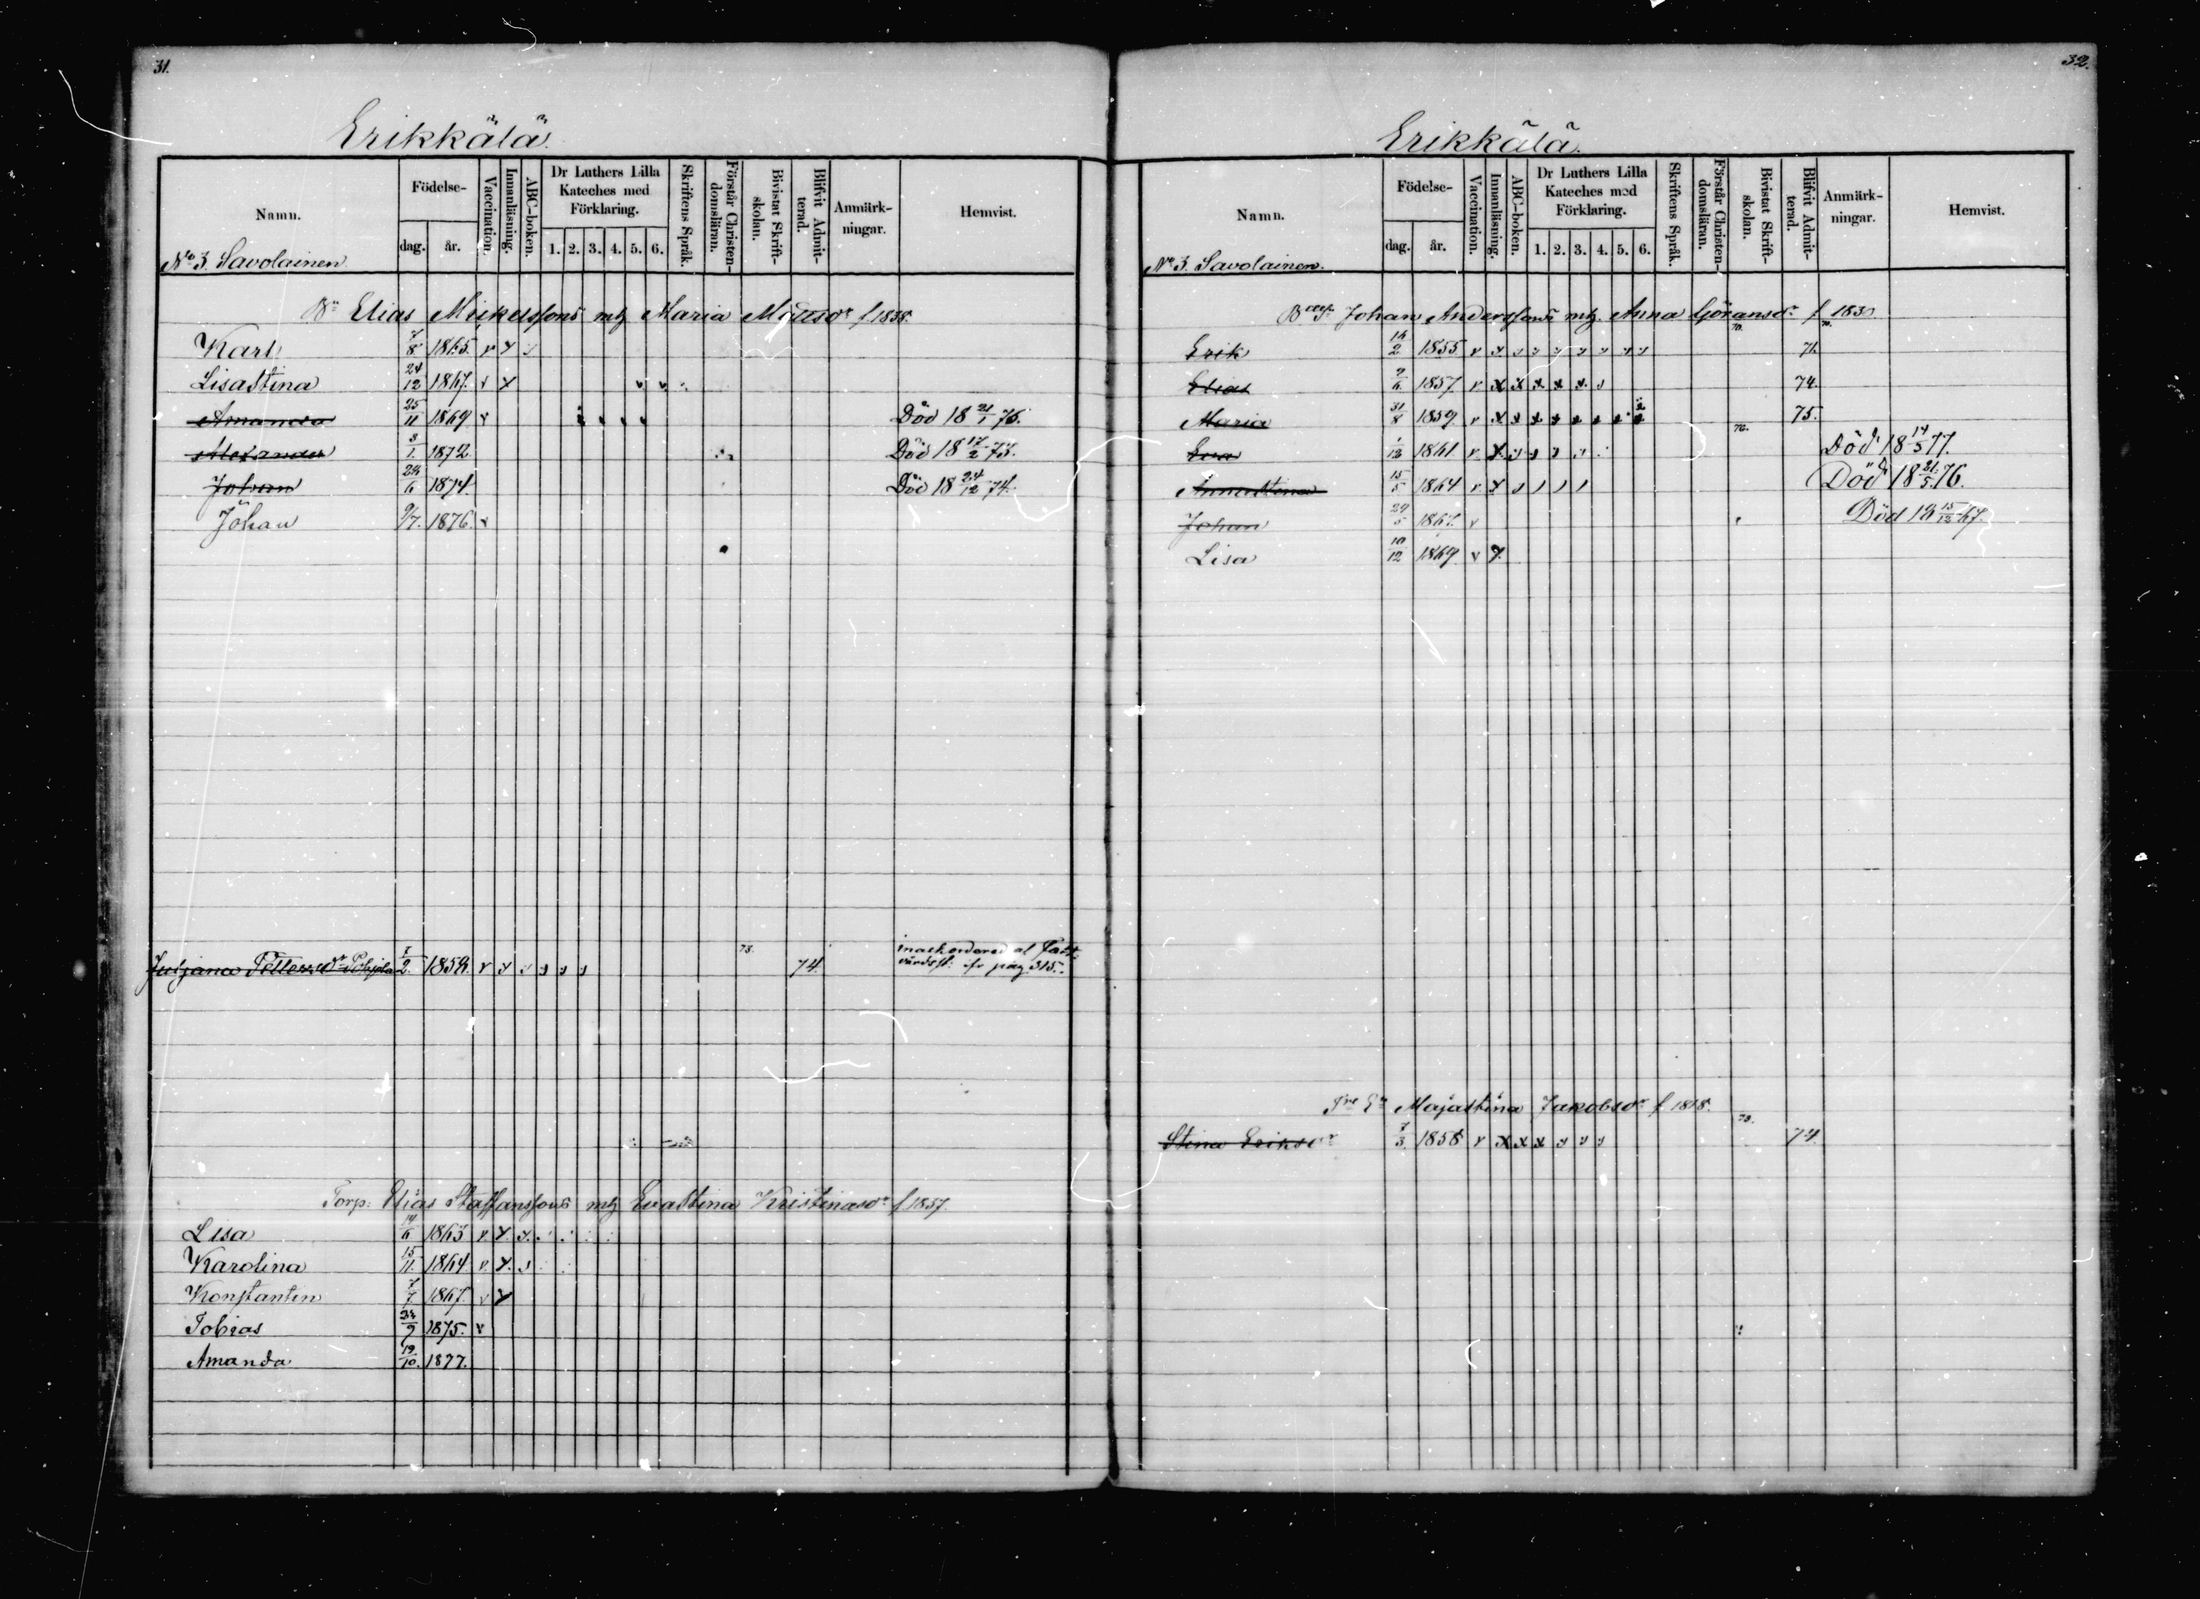 31.
Erikkälä.
Namn.
Födelse-
dag.
år.
Vaccination.
Innanläsning.
ABC-boken.
Dr Luthers Lilla
Kateches med
Förklaring.
1. 2. 3. 4. 5. 6.
Skriftens Språk.
Förstår Christen-
domsläran.
Bivistat Skrift-
skolan.
Blifvit Admit-
terad.
Anmärk-
ningar.
Hemvist.
No 3. Savolainen
Bn Elias Mickelssons mtz Maria f 1838.
Karl 7/8 1865. v x
Lisastina 24/12 1867. v x
Amanda 25/11 1869 v Död 18 21/1 76.
Alexander 3/1. 1872 Död 18 17/2 73.
Johan 24/6 1874. Död 18 24/12 74.
Johan 9/7. 1876. v
Juljana Pettersdr Pohjola 1/2. 1858. v 73. 74.
pag 315.
Torp. Elias Staffanssons mtz Evastina Kristinasdr f 1837.
Lisa 14/6 1863 v. x.
Karolina 15/11. 1864 v. x.
Konstantin 7/7 1867. v x
Tobias 24/9 1875. v
Amanda 19/10. 1877.
32.
Erikkälä.
Namn.
Födelse-
dag.
år.
Vaccination.
Innanläsning.
ABC-boken.
Dr Luthers Lilla
Kateches med
Förklaring.
1. 2. 3. 4. 5. 6.
Skriftens Språk.
Förstår Christen-
domsläran.
Bivistat Skrift-
skolan.
Blifvit Admit-
terad.
Anmärk-
ningar.
Hemvist.
No 3. Savolainen.
Johan Anderssons mtz. Anna Göransdr f 183
Erik 1855 v. 70. 71.
Elias 1857. v. x x x x x 74.
Maria 31/8 1859. v. 75.
Eva 1/12 1861 v. 76. Död 18 14/5 77.
Annastina 15/5 1864 v. Död 18 21/5 76.
Johan 29/5 1867. v Död 18 15/12 67.
Lisa 10/12 1869. v x.
Majastina Jakobsdr f 1818.
Stina Eriksdr 7/3. 1858 v x x x 73. 74.